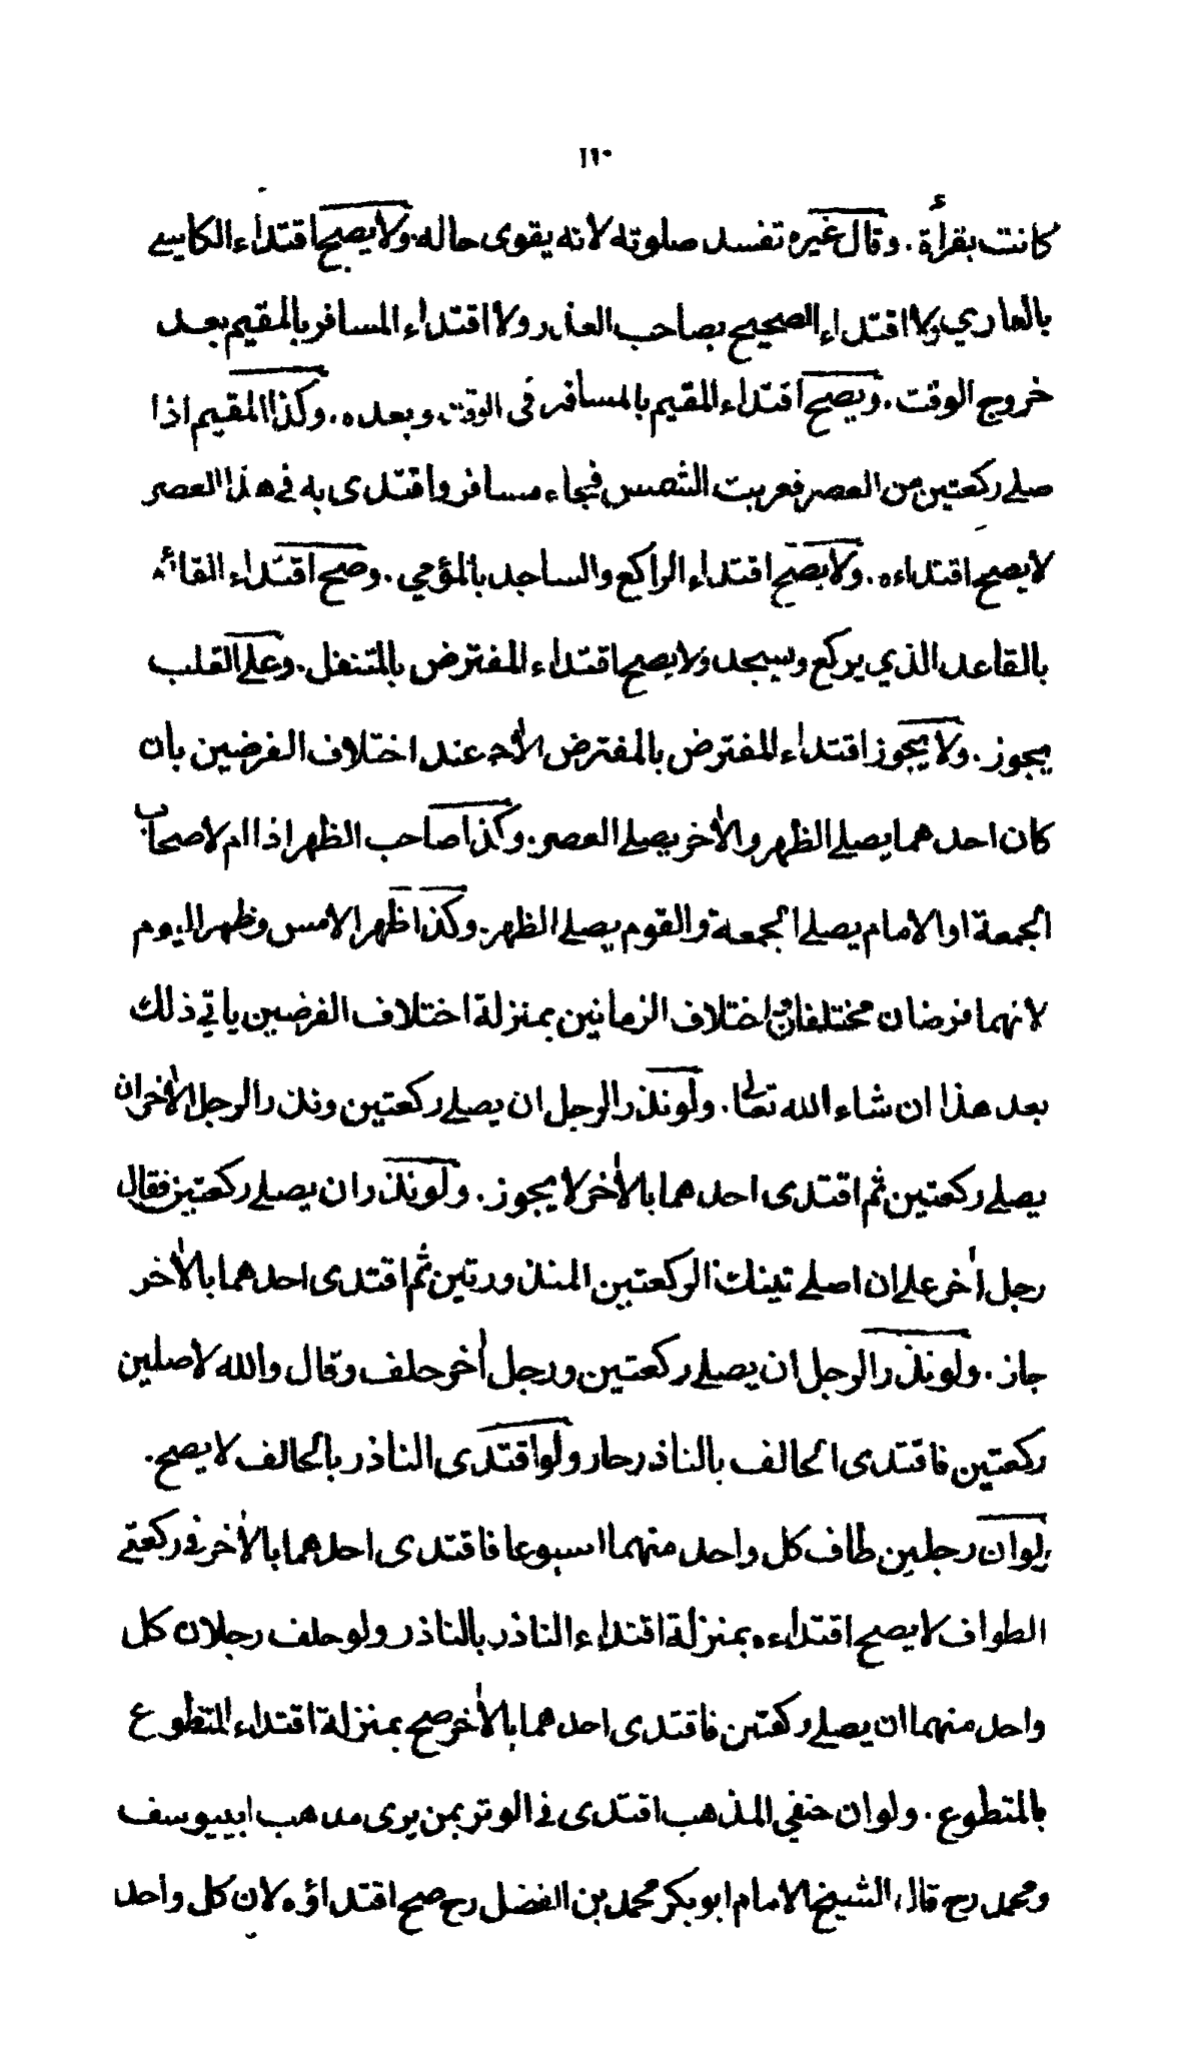 ١١٠
كانت بقرأة . وقال غيره تفسد صلوته لانه يقوى حاله . ولا يصح اقتداء الكاسي
بالعاري ولا اقتداء الصحيح بصاحب العذر ولا اقتداء المسافر بالمقيم بعد
خروج الوقت . ويصح اقتداء المقيم بالمسافر في الوقت وبعده . وكذا المقيم اذا
صلے ركعتين من العصر فغربت الشمس فجاء مسافر واقتدى به في هذا العصر
لا يصح اقتداءه . ولا يصح اقتداء الراكع والساجد بالمؤمي . وصح اقتداء القائم
بالقاعد الذي يركع ويسجد ولا يصح اقتداء المفترض بالمتنفل . وعلے القلب
يجوز . ولا يجوز اقتداء المفترض بالمفترض الأخر عند اختلاف الفرضين بان
كان احدهما يصلے الظهر والأخر يصلے العصر . وكذا صاحب الظهر اذا ام لاصحاب
الجمعة او الامام يصلے الجمعة والقوم يصلے الظهر . وكذا ظهر الامس وظهر اليوم
لانهما فرضان مختلفان واختلاف الزمانين بمنزلة اختلاف الفرضين ياتي ذلك
بعد هذا ان شاء الله تعالى . ولو نذر الرجل ان يصلے ركعتين ونذر الرجل الأخر ان
يصلے ركعتين ثم اقتدى احدهما بالأخر لا يجوز . ولو نذر ان يصلے ركعتين فقال
رجل أخر علے ان اصلے تينك الركعتين المنذورتين ثم اقتدى احدهما بالأخر
جاز . ولو نذر الرجل ان يصلے ركعتين ورجل أخر حلف وقال والله لاصلين
ركعتين فاقتدى الحالف بالناذر جاز ولو اقتدى الناذر بالحالف لا يصح .
ولو ان رجلين طاف كل واحد منهما اسبوعا فاقتدى احدهما بالأخر في ركعتے
الطواف لا يصح اقتداءه بمنزلة اقتداء الناذر بالناذر ولو حلف رجلان كل
واحد منهما ان يصلے ركعتين فاقتدى احدهما بالأخر صح بمنزلة اقتداء المتطوع
بالمتطوع . ولو ان حنفي المذهب اقتدى في الوتر بمن يرى مذهب ابييوسف
ومحمد رح قال الشيخ الامام ابو بكر محمد بن الفضل رح صح اقتداؤه لان كل واحد